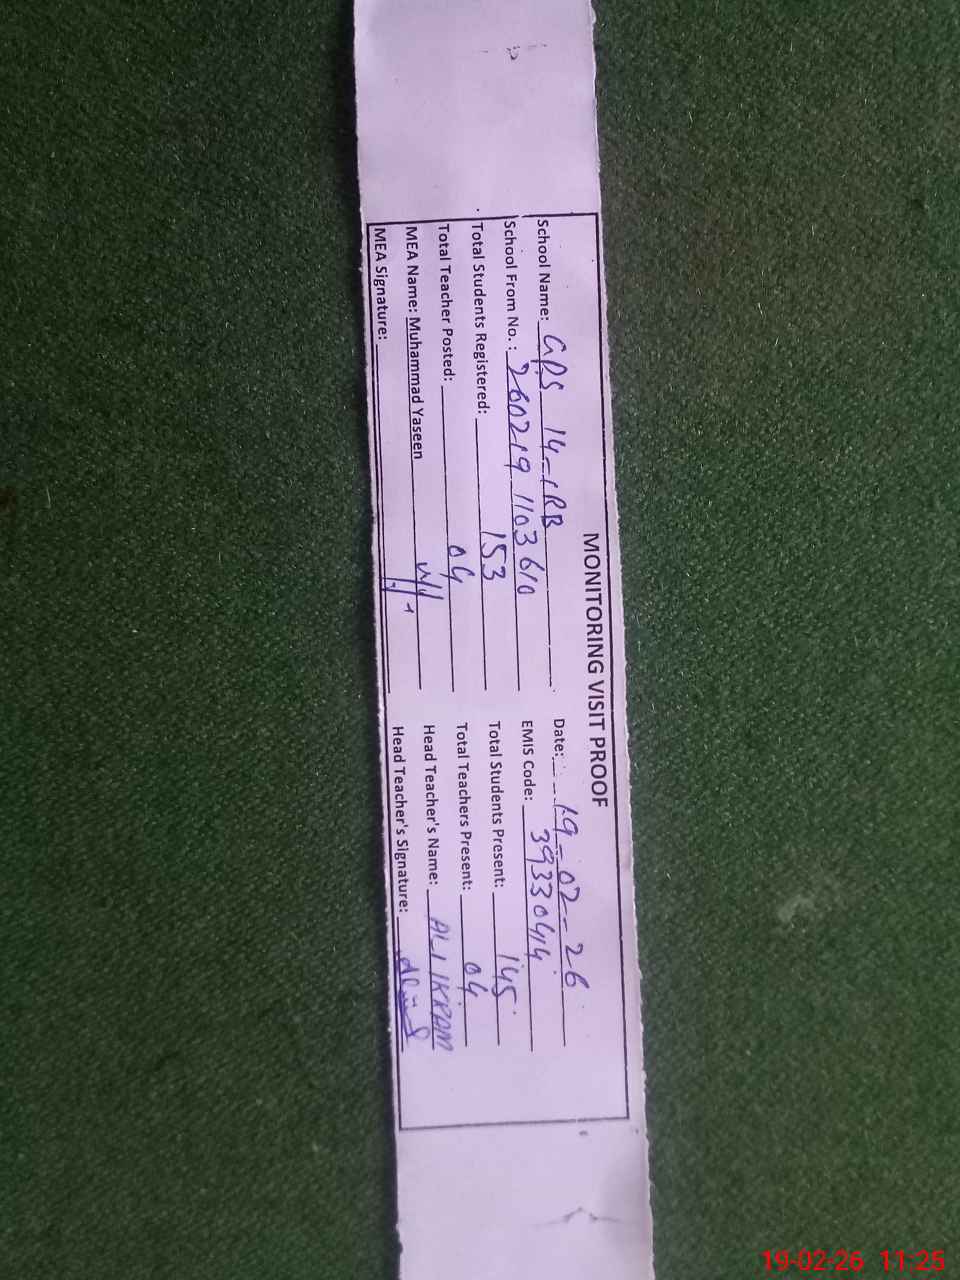 MONITORING VISIT PROOF
School Name: GPS 14-1RB Date: 19-02-26
School From No. : 2602191103610 EMIS Code: 39330414
Total Students Registered: 153 Total Students Present: 145
Total Teacher Posted: 04 Total Teachers Present: 04
MEA Name: Muhammad Yaseen Head Teacher's Name: ALI IKRAM
MEA Signature: Head Teacher's Signature:
19-02-26 11:25